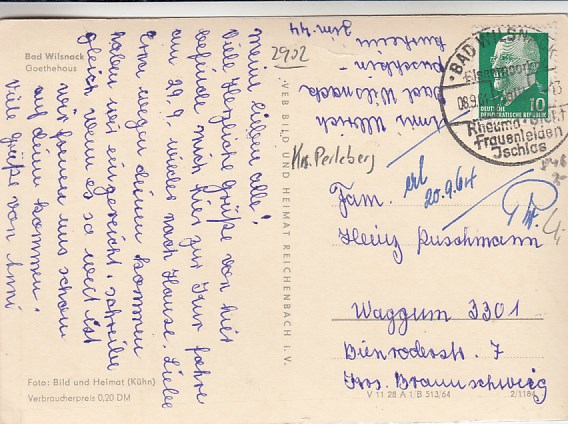 Bad Wilsnack
Goethehaus
Mein lieben alle!
Viele Herzliche Grüße von hier
befinde mich hier zur Kur fahre
am 29.9. wieder nach Hause. Liebe
Erna wegen deinen kommen
haben wir eingereicht. schreibe
gleich wenn es so weit ist
wir freuen uns schon
auf deine kommen.
Viele Grüße von Anni
Foto: Bild und Heimat (Kühn)
Verbraucherpreis 0,20 DM
VEB BILD UND HEIMAT REICHENBACH I. V.
2902
Anni Ullrich
Bad Wilsnack
Kurheim
Zim. 44
Krs. Perleberg
BAD WILSNACK
08.9.64
Rheuma · Gicht
Frauenleiden
Ischias
10
DEUTSCHE
DEMOKRATISCHE REPUBLIK
erl
20.9.64
Fam.
Heinz Puschmann
Waggum 3301
Bienroderstr. 7
Krs. Braunschweig
V 11 28 A 1/B 513/64
2/1184